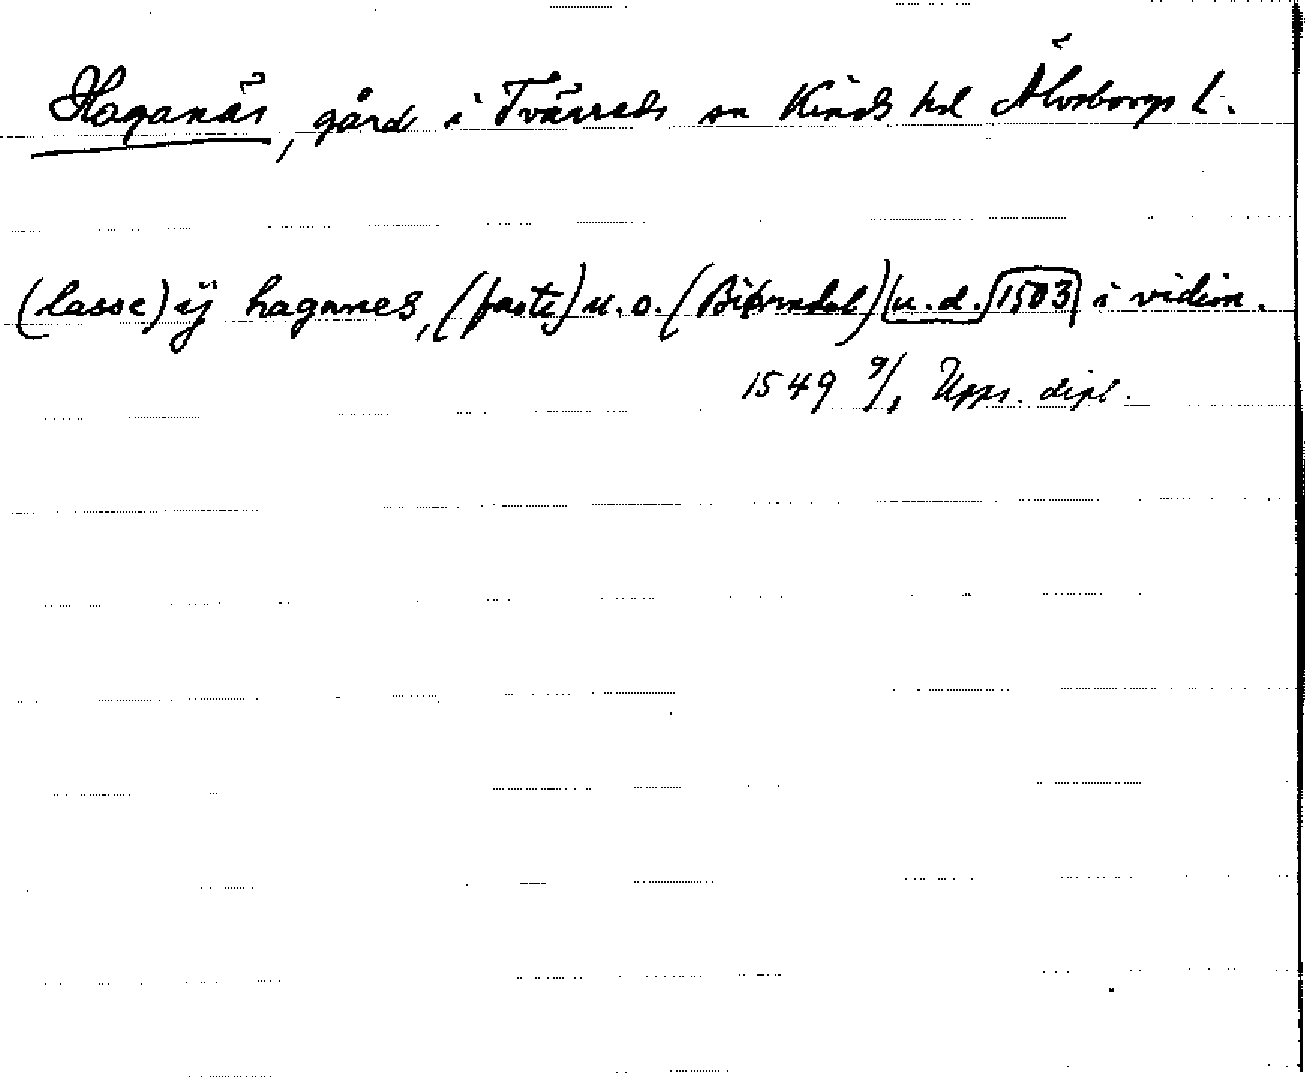 Haganäs, gård i Tvärreds sn Kinds hd Älvsborgs l.
(lasse) ij hagnnes, (faste) u. o. (Biörndal) u. d. 1503 i vidim.
1549 9/1 Upps. dipl.